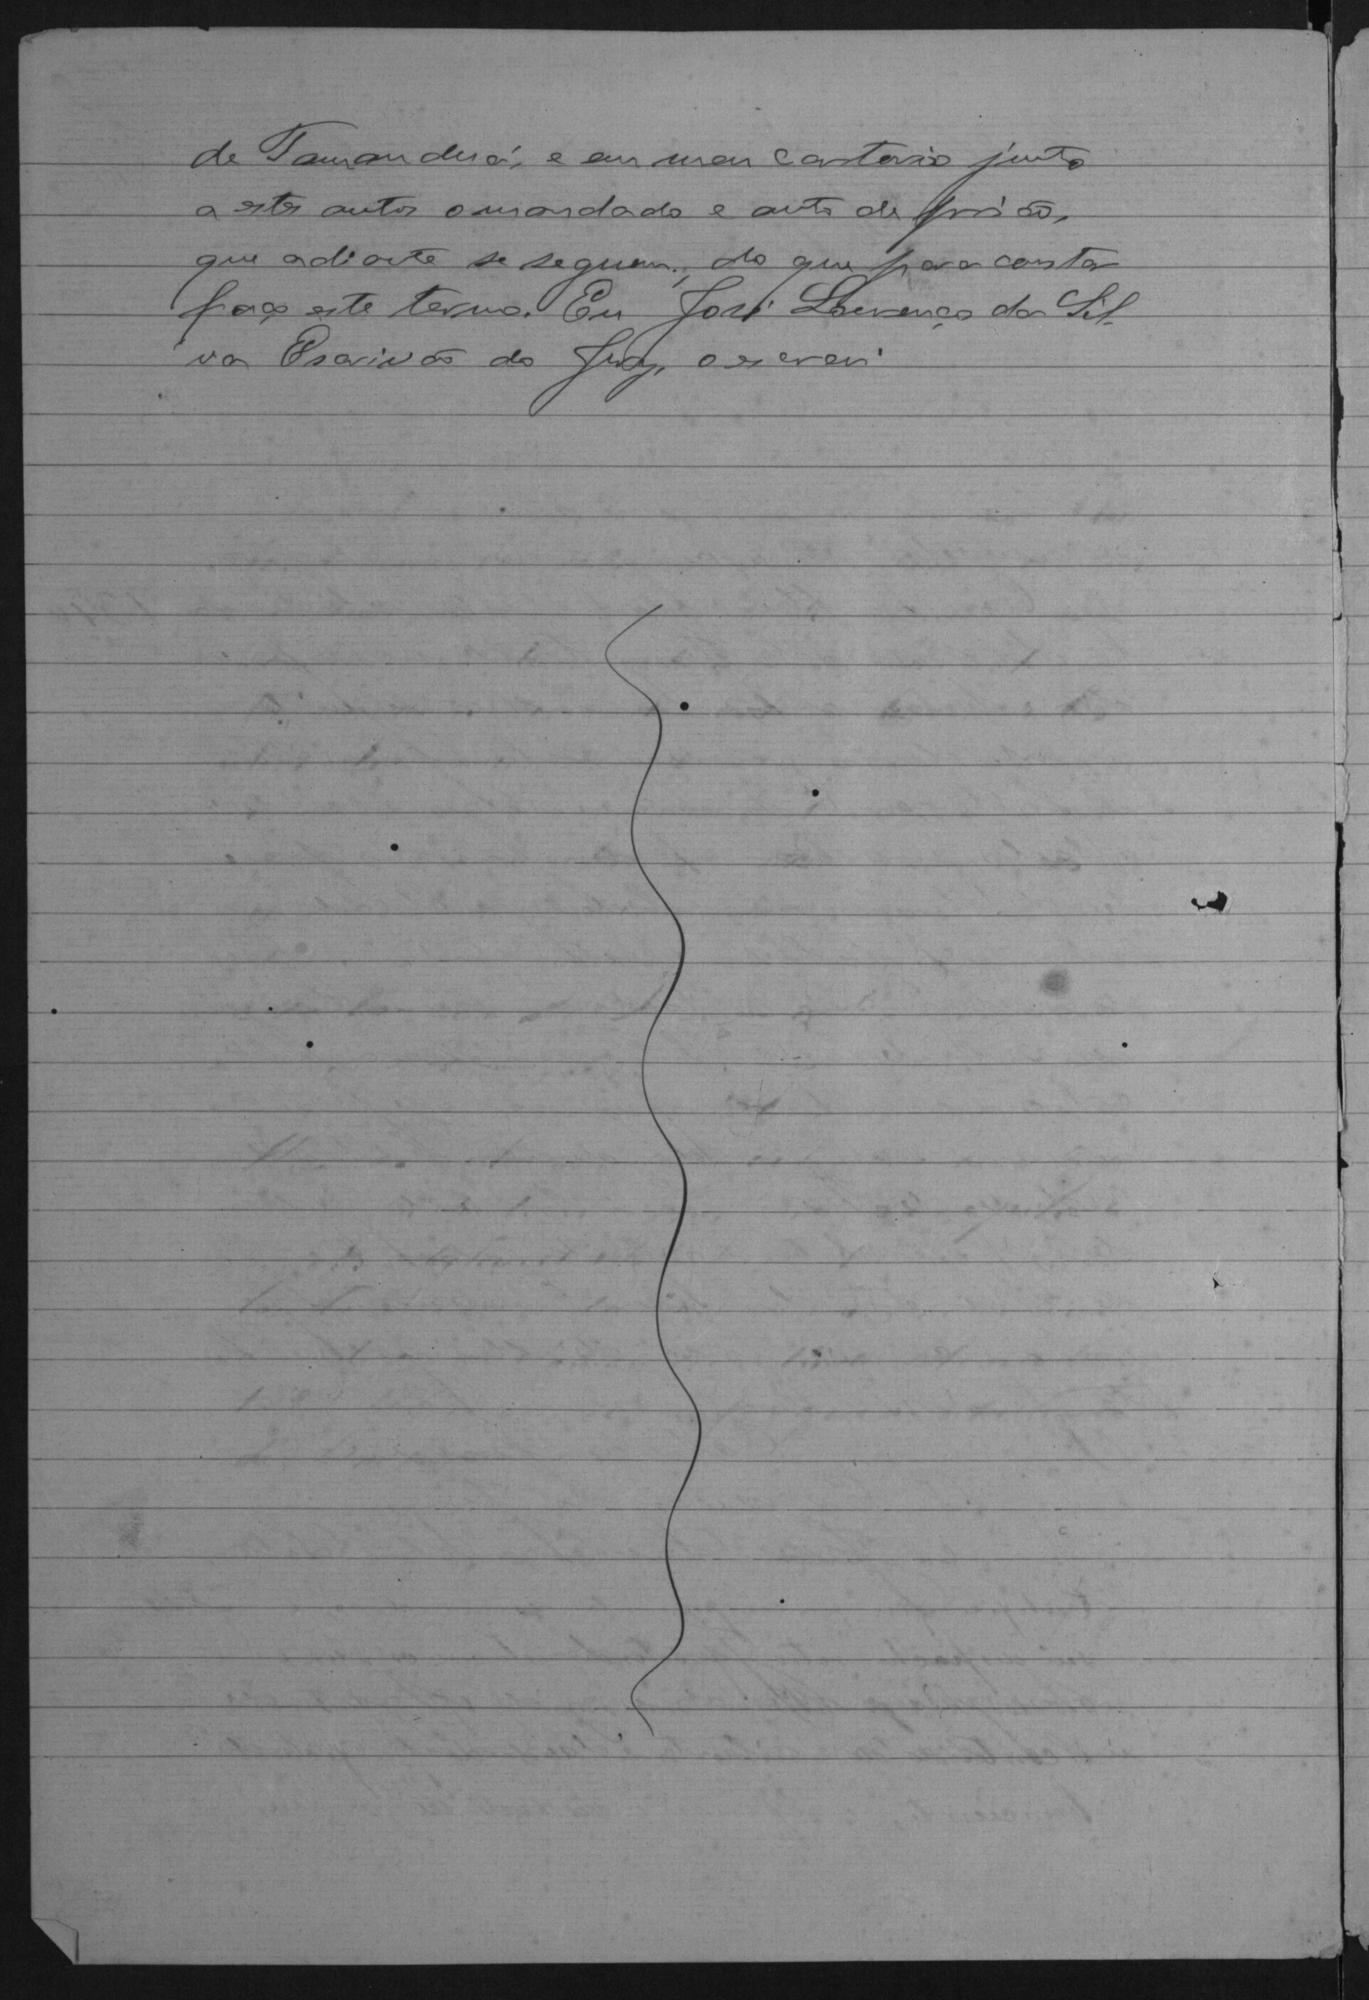 de Tamanduá, e em meu cartorio junto
a estes autos o mandado e auto de prisão,
que adiante se seguem; do que para constar
faço este termo. Eu José Lourenço da Sil-
va Escrivão do Jury, o escrevi